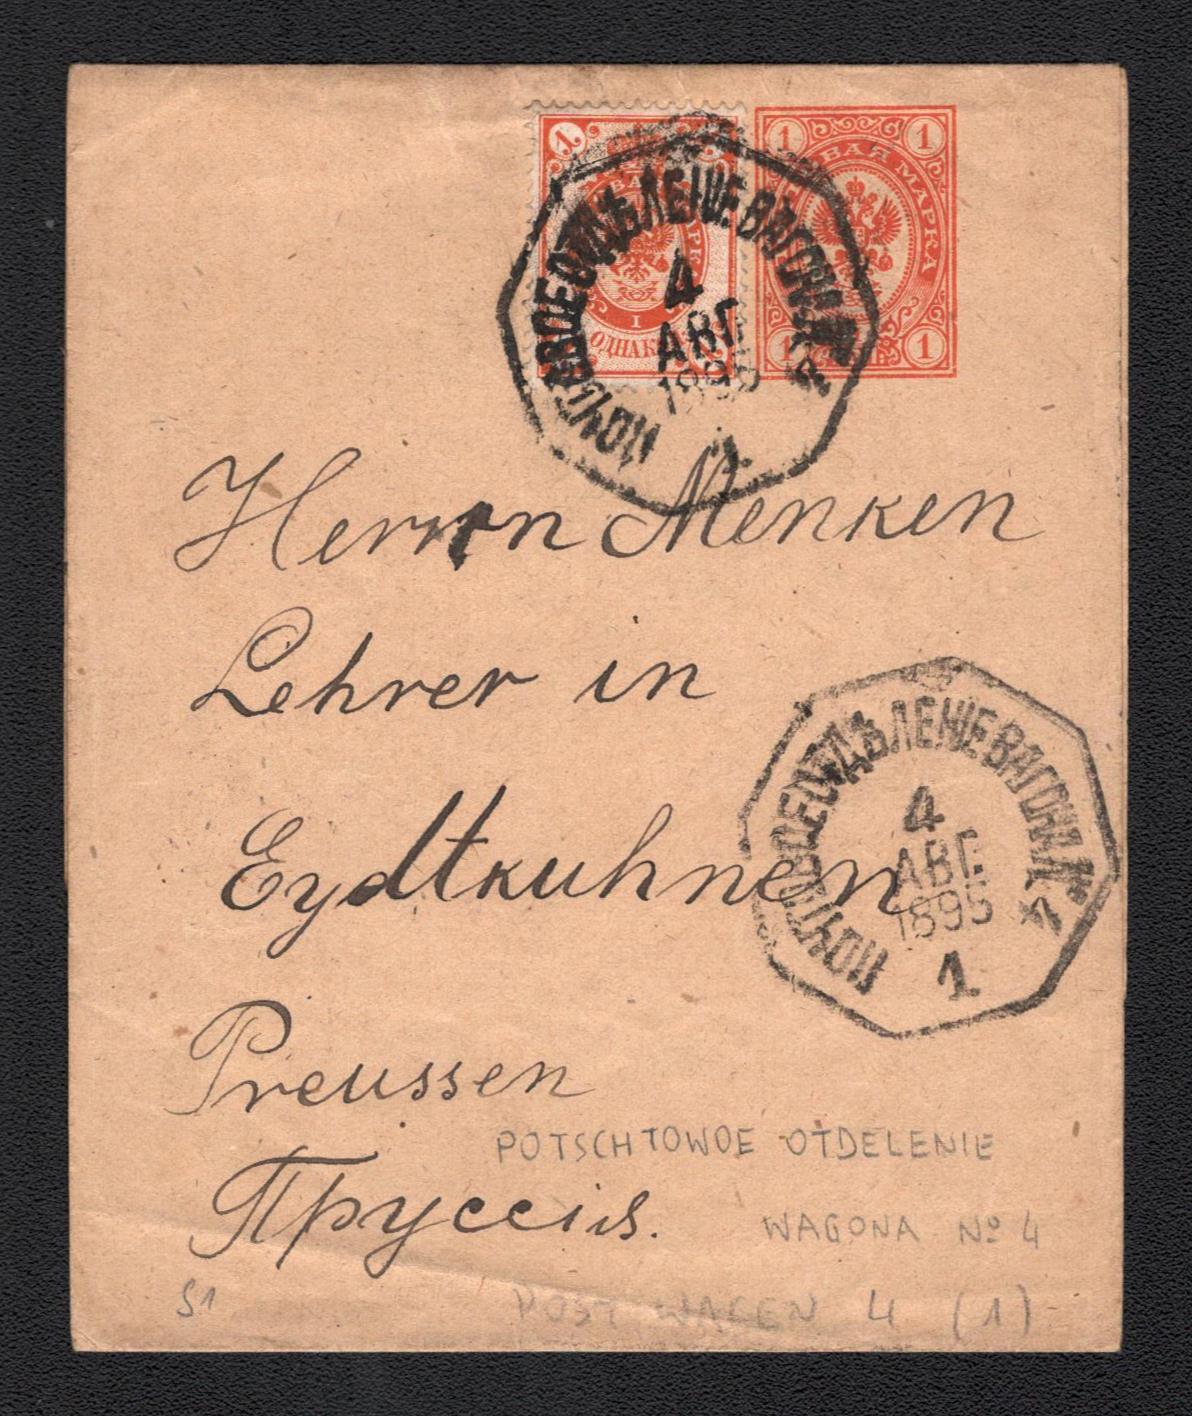 1
1 ВАЯ МАРКА 1
I
ОДНАК
1 1
ПОЧТОВОЕ ОТДѢЛЕНІЕ ВАГОНА № 4
4
АВГ.
1895
1
Herrn Menken
Lehrer in
Eydtkuhnen
ПОЧТОВОЕ ОТДѢЛЕНІЕ ВАГОНА № 4
4
АВГ.
1895
1
Preussen
POTSCHTOWOE OTDELENIE
Пруссія.
WAGONA No 4
S1
POST WAGEN 4 (1)